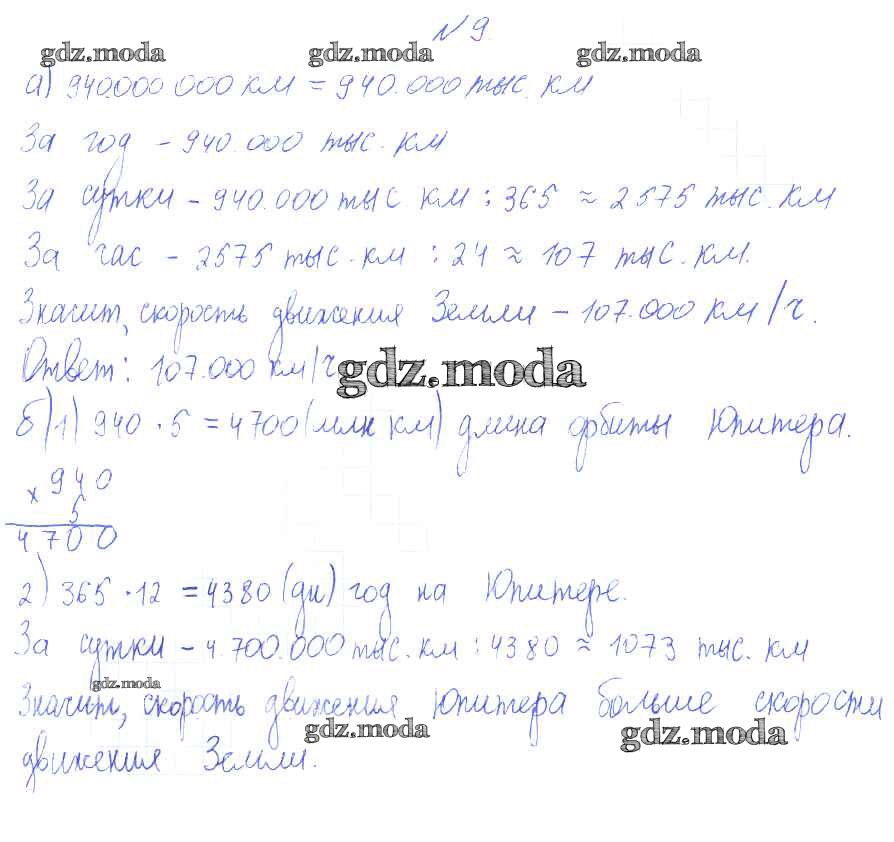 N 9
gdz.moda gdz.moda gdz.moda
а) 940.000 000 км = 940.000 тыс. км
За год - 940.000 тыс. км
За сутки - 940.000 тыс км : 365 ≈ 2575 тыс. км
За час - 2575 тыс. км : 24 ≈ 107 тыс. км.
Значит, скорость движения Земли - 107.000 км/ч.
Ответ: 107.000 км/ч
gdz.moda
б) 1) 940 · 5 = 4700 (млн км) длина орбиты Юпитера.
× 940
5
4700
2) 365 · 12 = 4380 (дн) год на Юпитере.
За сутки - 4.700.000 тыс. км : 4380 ≈ 1073 тыс. км
gdz.moda
Значит, скорость движения Юпитера больше скорости
gdz.moda gdz.moda
движения Земли.